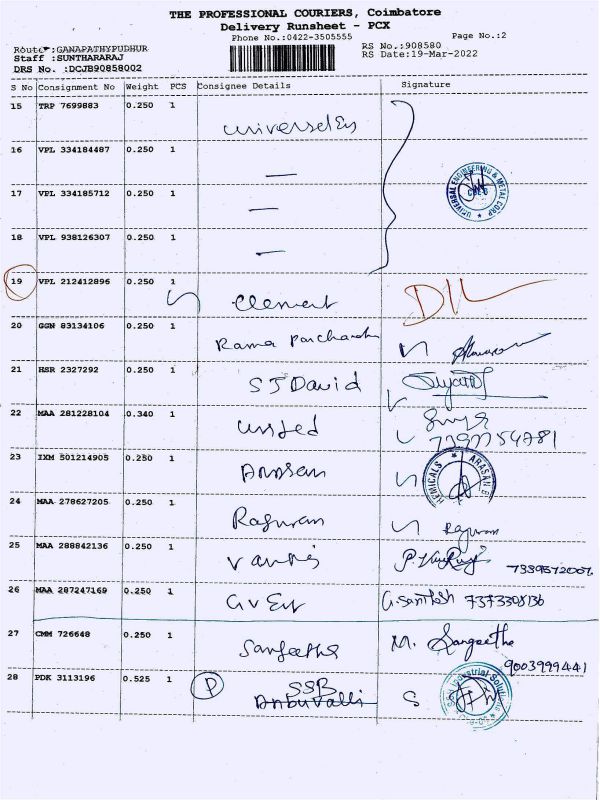 THE PROFESSIONAL COURIERS, Coimbatore
Delivery Runsheet - PCX
Phone No.:0422-3505555 Page No.:2
Route :GANAPATHYPUDHUR RS No.:908580
Staff :SUNTHARARAJ RS Date:19-Mar-2022
DRS No. :DCJB90858002
S No Consignment No Weight PCS Consignee Details Signature
15 TRP 7699883 0.250 1
16 VPL 334184487 0.250 1
UNIVERSAL ENGINEERING & METAL CORP
17 VPL 334185712 0.250 1
18 VPL 938126307 0.250 1
19 VPL 212412896 0.250 1 Clement
20 GGN 83134106 0.250 1 Rama
21 HSR 2327292 0.250 1 SJ David
22 MAA 281228104 0.340 1 United
23 IXM 501214905 0.250 1
24 MAA 278627205 0.250 1 Raguram Raguram
25 MAA 288842136 0.250 1
26 MAA 287247169 0.250 1 G.Santhosh 7373308136
27 CMM 726648 0.250 1 Sangeetha M. Sangeetha
9003999441
28 PDK 3113196 0.525 1 P SSB
Anbuvalli